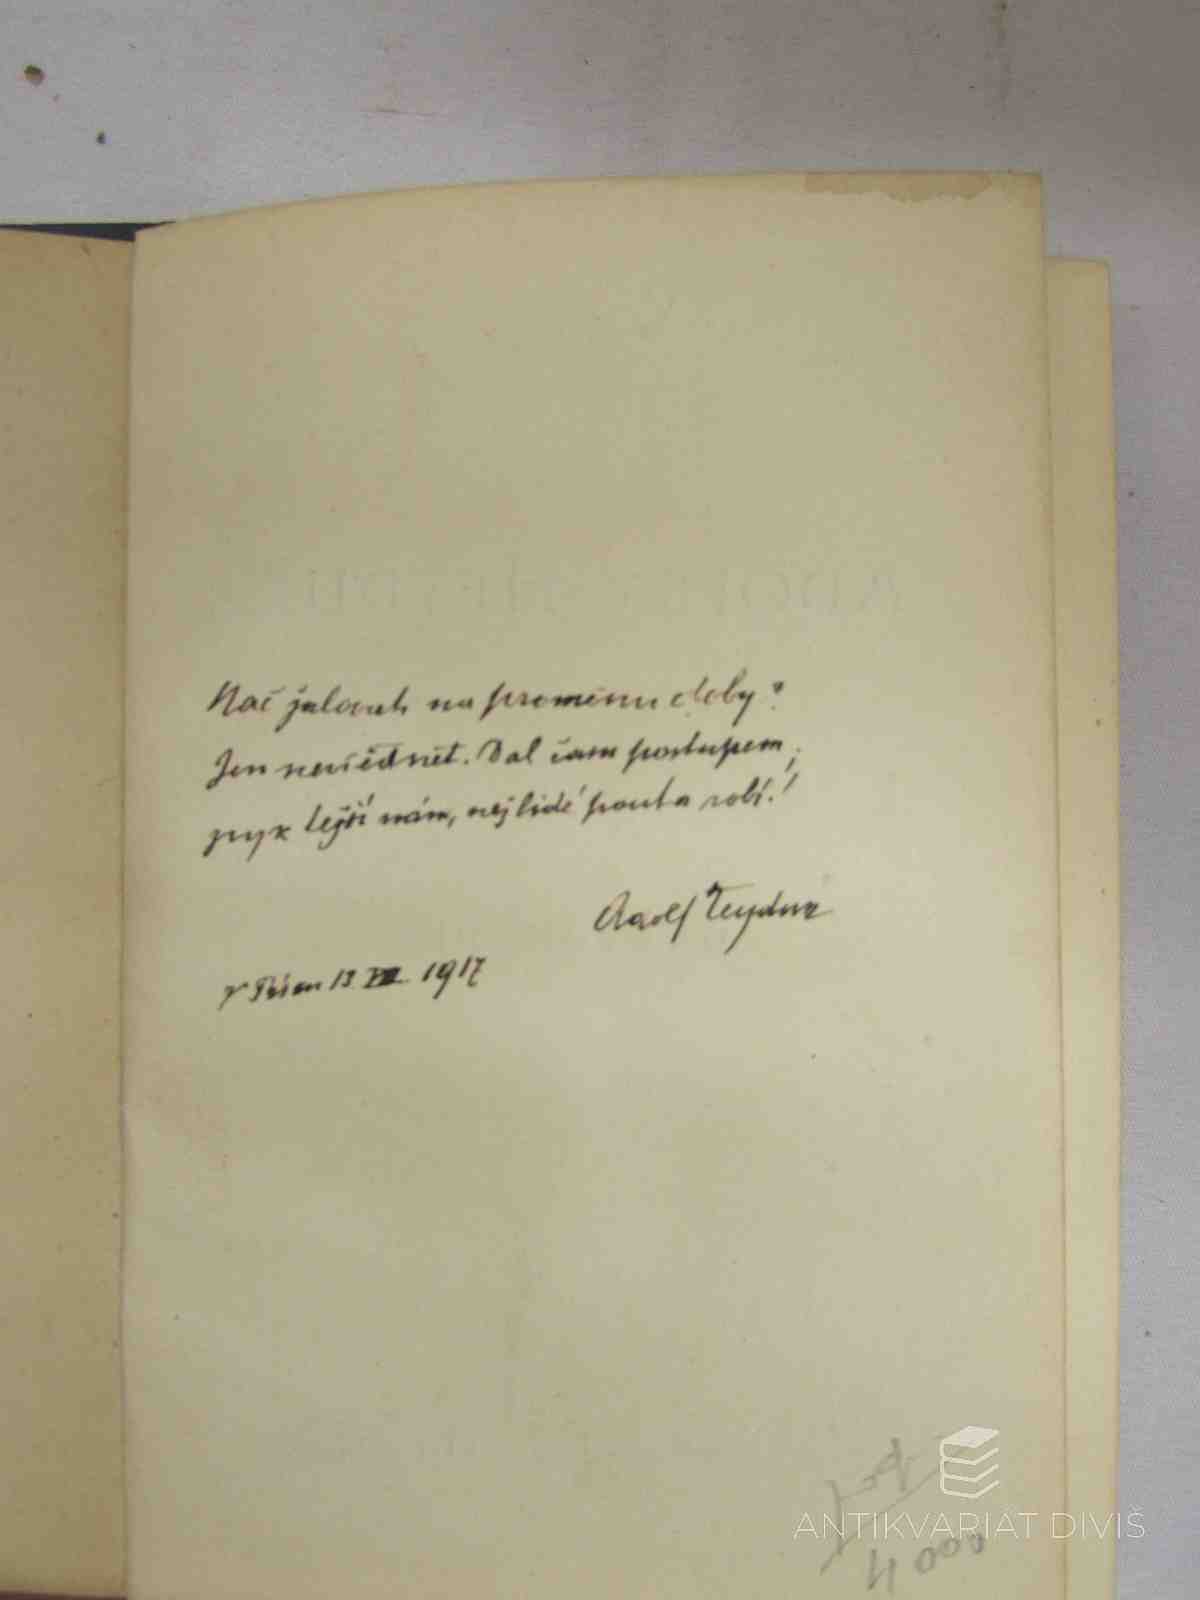 Nač žalovat na proměnu doby?
Jen nevšednět. Dal čam postupem,
jazyk lepší nám, nejlidé pouta robí!
Adolf Heyduk
V Písku 13 VII 1917
4000
ANTIKVARIÁT DIVIŠ